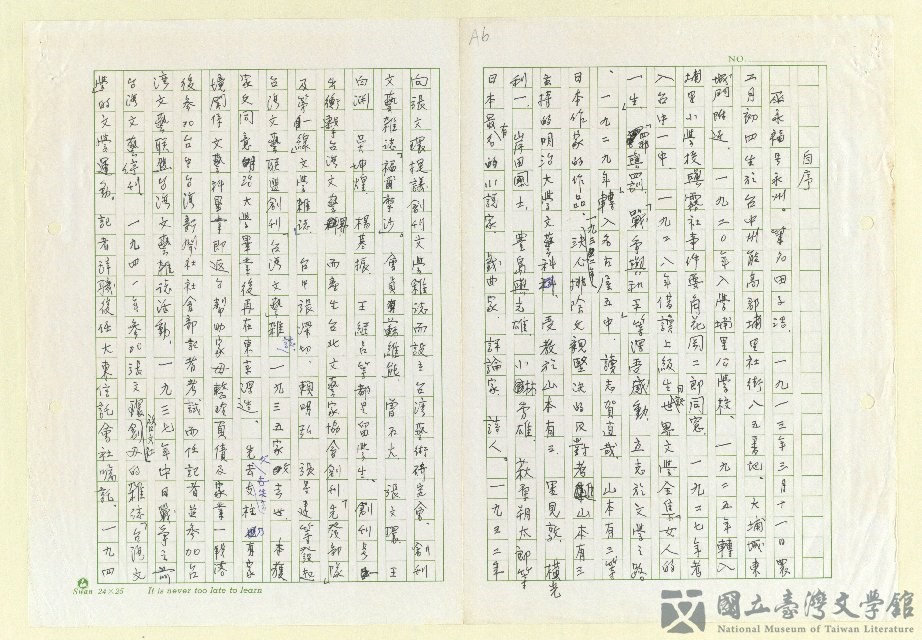 A6
NO
自序
巫永福生永州。筆名田子浩。一九一三年三月十一日農
二月初四生於台中州能高郡埔里社街八五番地。大埔城東
城門附近。一九二〇年入學埔里公學校。一九二五年轉入
埔里小學校與霧社事件要角花岡二郎同窓。一九二七年考
入台中一中。一九二八年借讀上級生世界文學全集「女人的
一生」「戰爭與和平」等深受感動，立志於文學之路
。一九二九年轉入名古屋五中，讀志賀直哉、山本有三等
日本作家的作品。一九三二年決入排除父親堅決的反對考山本有三
主持的明治大學文藝科，受教於山本有三、里見敦、橫光
利一、岸田國士、豐島與志雄、小林秀雄、萩原朔太郎等
日本最有名的小說家、戲曲家、評論家、詩人。一九三二年
向張文環提議創刊文學雜誌而設立台灣藝術研究會，創刊
文藝雜誌「福爾摩沙」。會員蘇維熊、曾石火、張文環、王
白淵、吳坤煌、楊基振、王繼呂等都是留學生。創刊
衝擊台灣文藝界而產生台北文藝家協會創刊「先發部隊」
及「第一線」文學雜誌，台中張深切、賴明弘、張星建等發起
台灣文藝聯盟創刊「台灣文藝」雜誌。一九三五家父去世，本預
家父同意明治大學畢業後再在東京深造。先父
境關係文藝科畢業即返台幫助家母整理負債及家業一段落
後參加台中台灣新聞社社會部記者考試而任記者並參加台
灣文藝聯盟台灣文藝雜誌活動。一九三七年中日戰爭之前
台灣文藝停刊。一九四一年參加張文環創辦的雜誌「台灣文
學」的文學運動。記者辭職後任大東信託會社囑託。一九四
Swan 24×25 It is never too late to learn
國立臺灣文學館
National Museum of Taiwan Literature